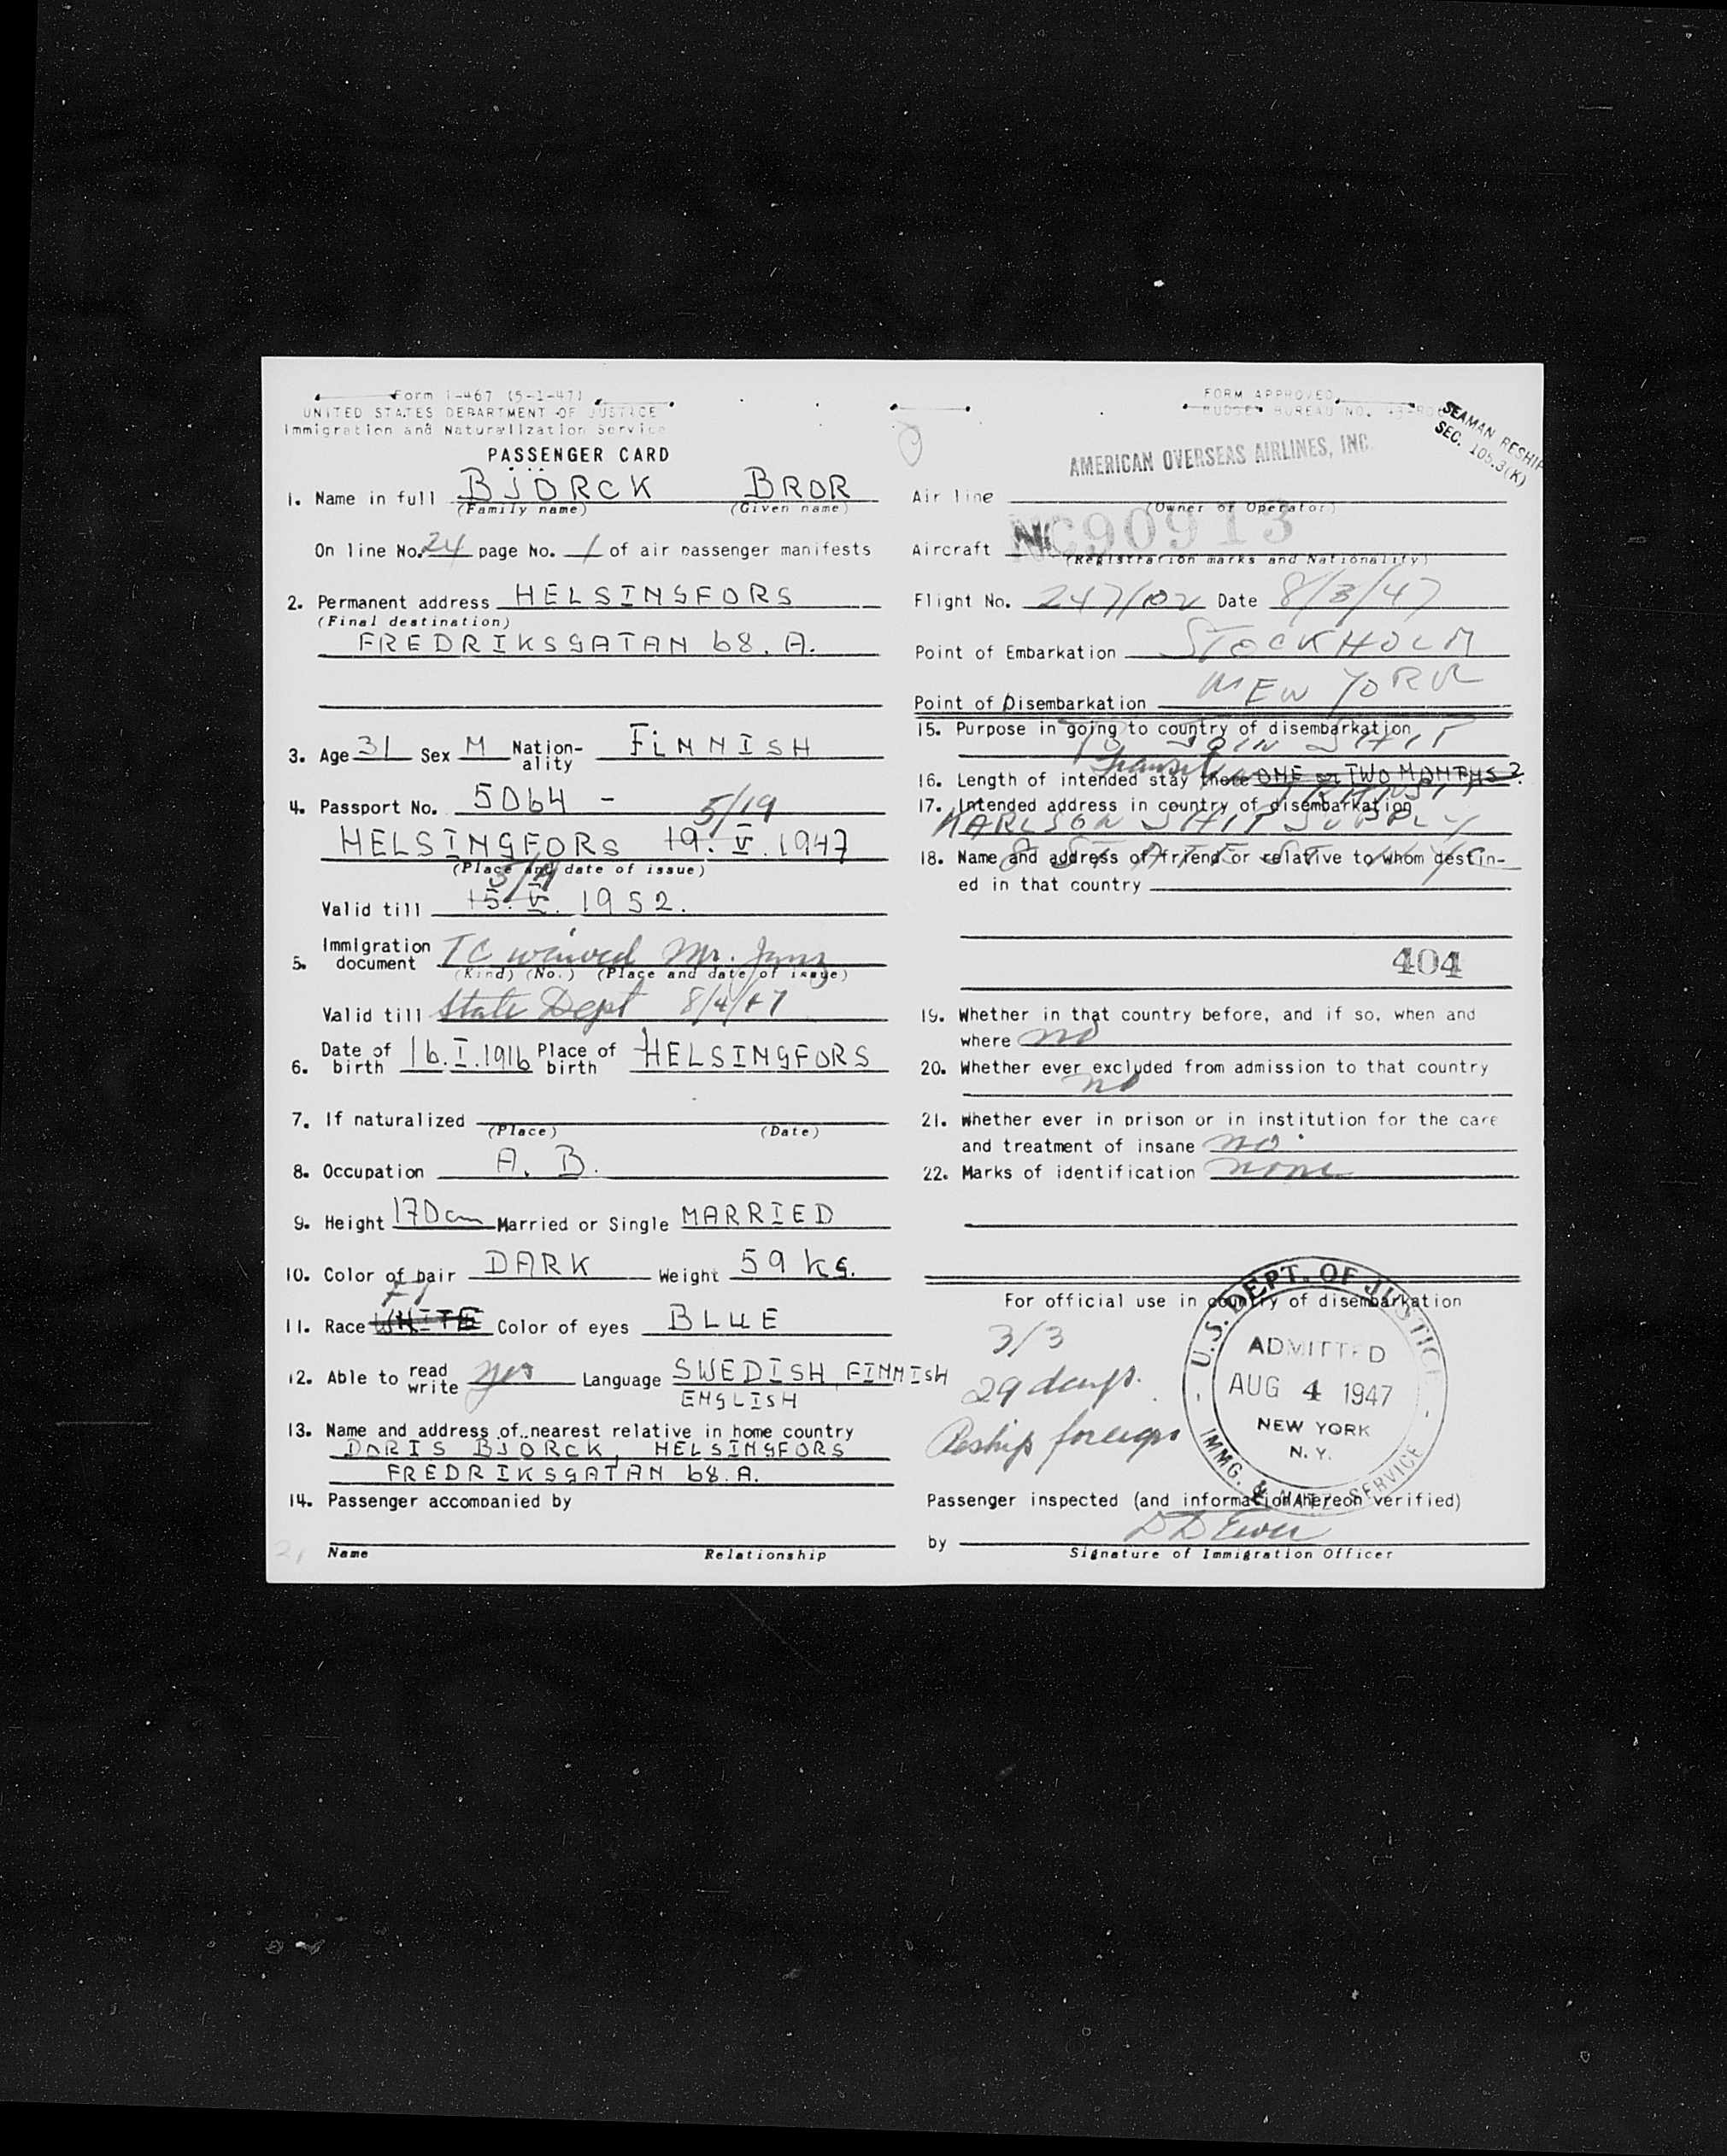 Form I-467 (5-1-47)
UNITED STATES DEPARTMENT OF JUSTICE
Immigration and Naturalization Service
PASSENGER CARD
1. Name in full BJÖRCK BROR
(Family name) (Given name)
On line No. 24 page No. 1 of air passenger manifests
2. Permanent address HELSINGFORS
(Final destination)
FREDRIKSGATAN 68. A.
3. Age 31 Sex M Nation-ality FINNISH
4. Passport No. 5064 -
5/19
HELSINGFORS 19. V. 1947
(Place and date of issue)
Valid till 15. V. 1952.
5. Immigration document TC waived Mr.
(Kind) (No.) (Place and date of issue)
Valid till State Dept 8/4/47
6. Date of birth 16.I.1916 Place of birth HELSINGFORS
7. If naturalized
(Place) (Date)
8. Occupation A. B.
9. Height 170 cm Married or Single MARRIED
10. Color of hair DARK Weight 59 kg.
11. Race WHITE Color of eyes BLUE
12. Able to read write yes Language SWEDISH, FINNISH
ENGLISH
13. Name and address of nearest relative in home country
DORIS BJÖRCK, HELSINGFORS
FREDRIKSGATAN 68. A.
14. Passenger accompanied by
Name Relationship
FORM APPROVED
BUDGET BUREAU NO.
SEAMAN RESHIP
SEC. 105.3(K)
AMERICAN OVERSEAS AIRLINES, INC.
Air line
(Owner or Operator)
Aircraft NC90913
(Registration marks and Nationality)
Flight No. 247/102 Date 8/3/47
Point of Embarkation STOCKHOLM
Point of Disembarkation NEW YORK
15. Purpose in going to country of disembarkation
TO JOIN SHIP
16. Length of intended stay there Transit ONE or TWO MONTHS?
17. Intended address in country of disembarkation
KARLSON SHIP SUPPLY
18. Name and address of friend or relative to whom destin-
8 STATE ST NYC
ed in that country
404
19. Whether in that country before, and if so, when and
where no
20. Whether ever excluded from admission to that country
no
21. Whether ever in prison or in institution for the care
and treatment of insane no
22. Marks of identification none
For official use in country of disembarkation
3/3
29 days.
Reship foreign
U.S. DEPT. OF JUSTICE
ADMITTED
AUG 4 1947
NEW YORK
N.Y.
IMMG. & NATZ. SERVICE
Passenger inspected (and information hereon verified)
by
Signature of Immigration Officer